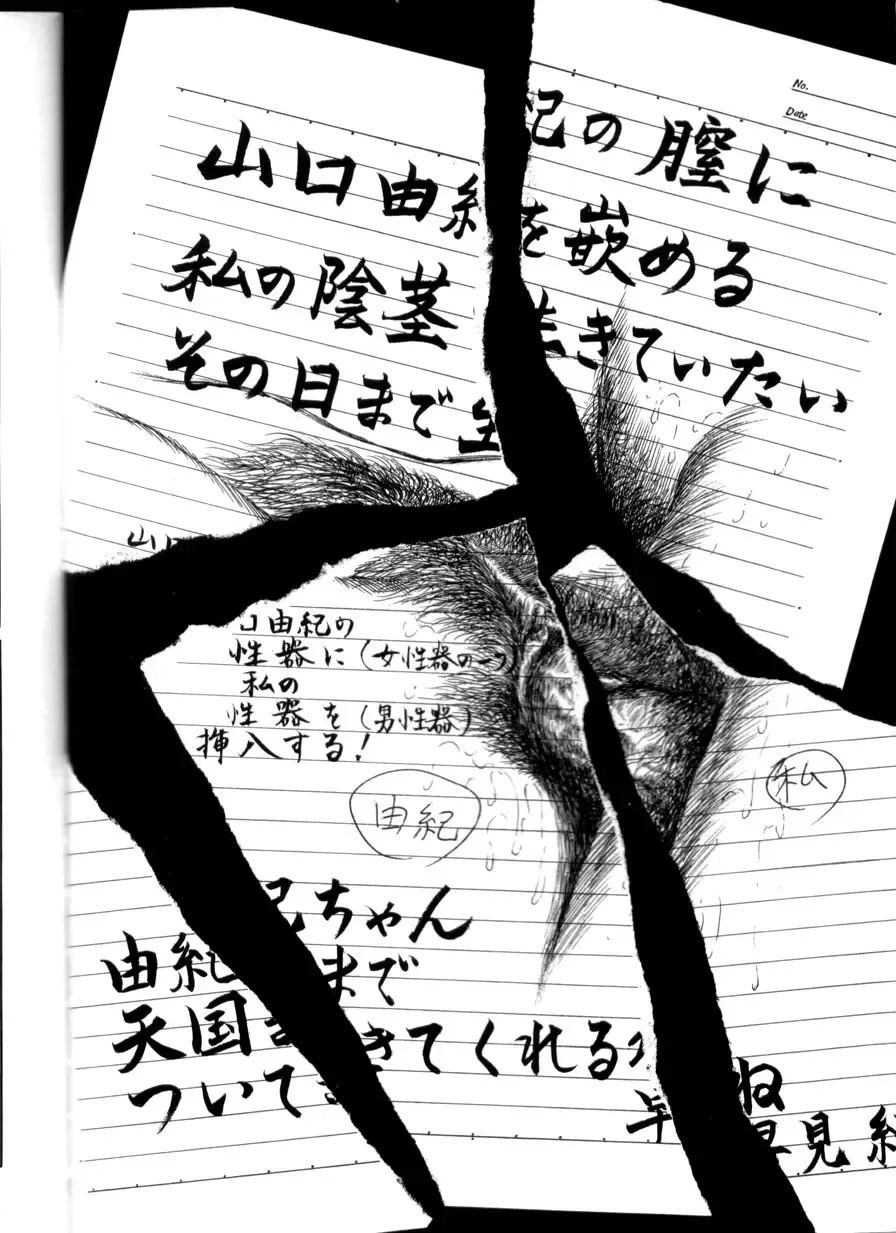 No.
Date
山口由紀の膣に
私の陰茎を嵌める
その日まで生きていたい
山口
口由紀の
性器に(女性器の一つ)
私の
性器を(男性器)
挿入する!
由紀
私
紀ちゃん
由紀 まで
天国 きてくれる
ついて
ね
早見